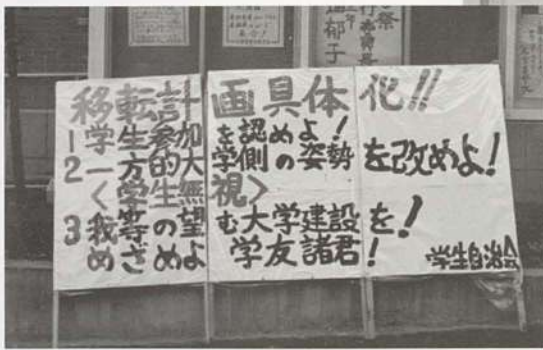 祭
郁子
移転計画具体化!!
1 学生参加を認めよ!
2 一方的大学側の姿勢を改めよ!
<学生無視>
3 我等の望む大学建設を!
めざめよ学友諸君!
学生自治会